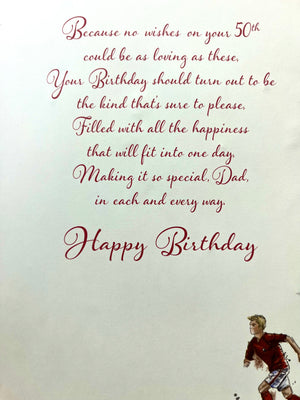 Because no wishes on your 50th
could be as loving as these,
Your Birthday should turn out to be
the kind that's sure to please,
Filled with all the happiness
that will fit into one day,
Making it so special, Dad,
in each and every way.
Happy Birthday